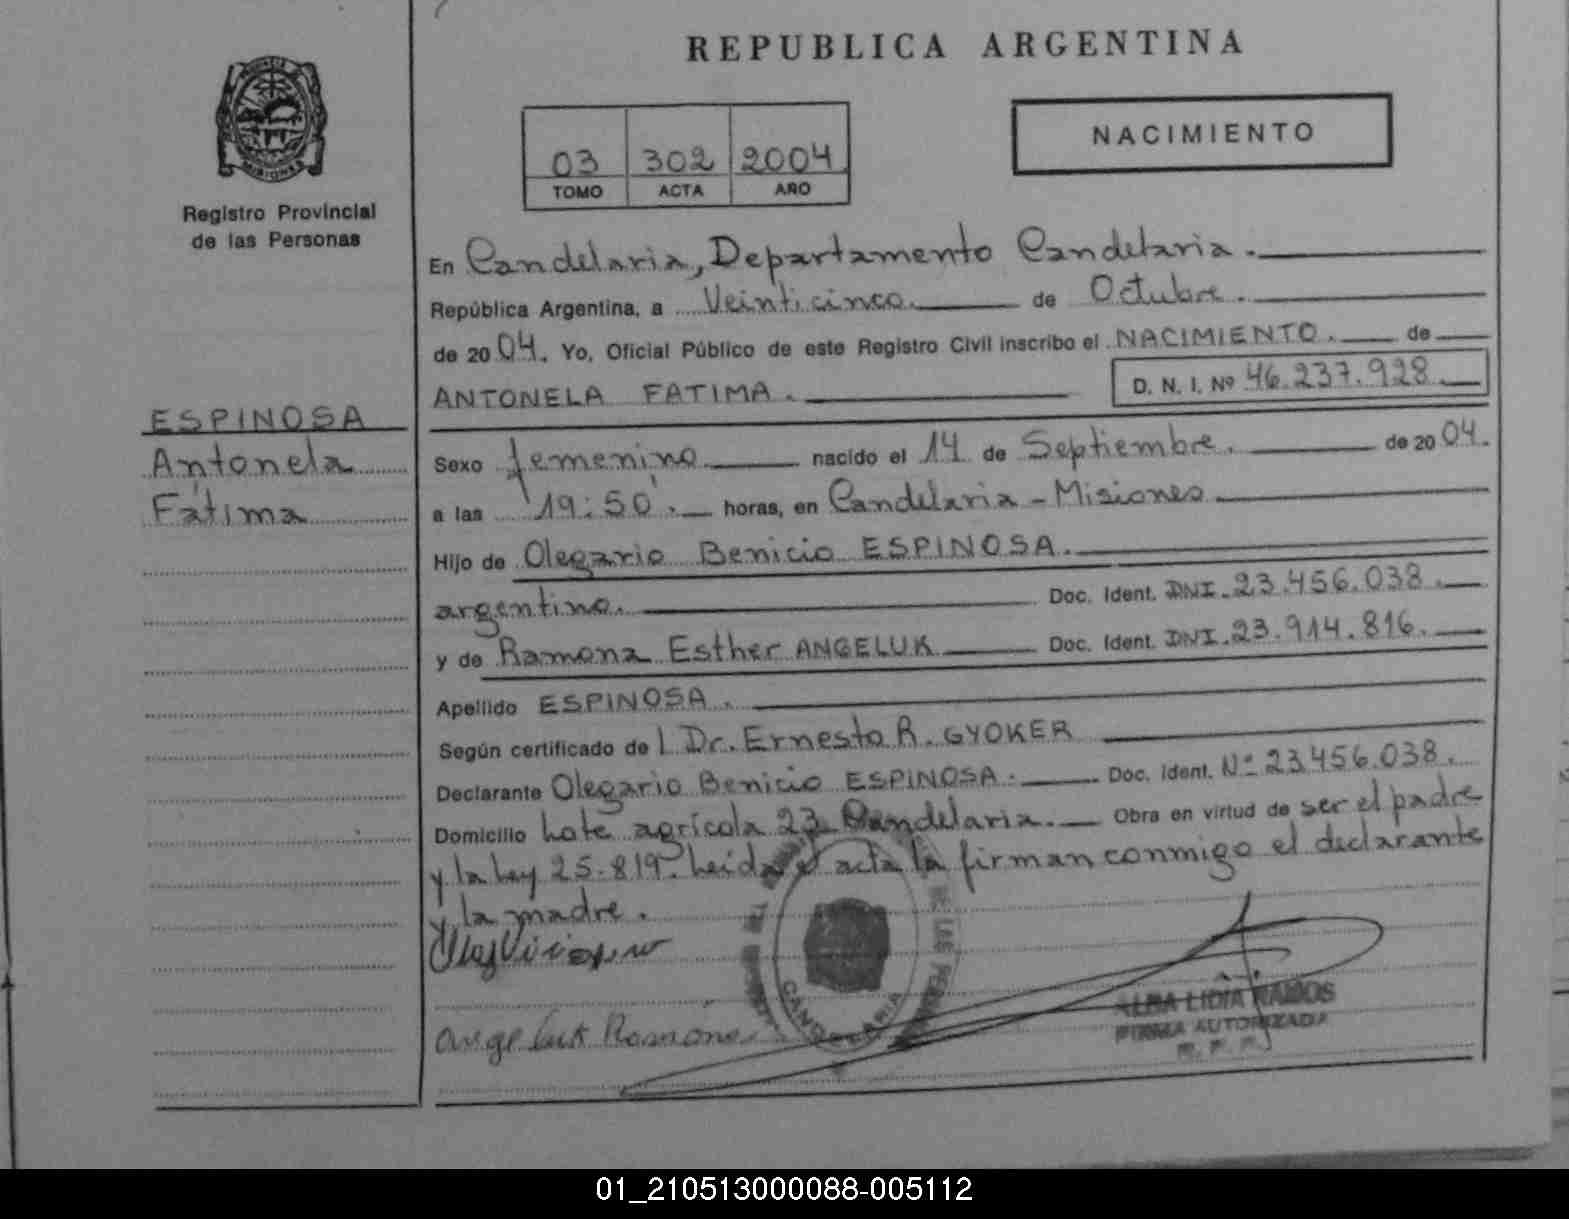 REPUBLICA ARGENTINA
PROVINCIA
MISIONES
Registro Provincial
de las Personas
03 302 2004
TOMO ACTA AÑO
NACIMIENTO
En Candelaria, Departamento Candelaria.
República Argentina, a Veinticinco. de Octubre.
de 2004. Yo, Oficial Público de este Registro Civil inscribo el NACIMIENTO. de
ANTONELA FATIMA. D. N. I. Nº 46.237.928.
ESPINOSA
Antonela
Fátima
Sexo femenino nacido el 14 de Septiembre. de 2004.
a las 19:50. horas, en Candelaria - Misiones
Hijo de Olegario Benicio ESPINOSA.
argentino. Doc. Ident. DNI. 23.456.038.
y de Ramona Esther ANGELUK Doc. Ident. DNI. 23.914.816.
Apellido ESPINOSA.
Según certificado de l Dr. Ernesto R. GYOKER
Declarante Olegario Benicio ESPINOSA. Doc. Ident. Nº 23.456.038.
Domicilio Lote agrícola 23 Candelaria. Obra en virtud de ser el padre
y la Ley 25.819. Leída el acta la firman conmigo el declarante
y la madre.
DE LAS
CANDELARIA
Angeluk Ramona
ALBA LIDIA RAMOS
FIRMA AUTORIZADA
R. P. P.
01_210513000088-005112